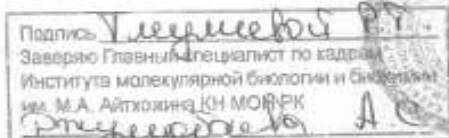 Подпись Р.Т.
Заверяю Главный специалист по кадрам
Института молекулярной биологии и биохимии
им. М.А. Айтхожина КН МОН РК
А.